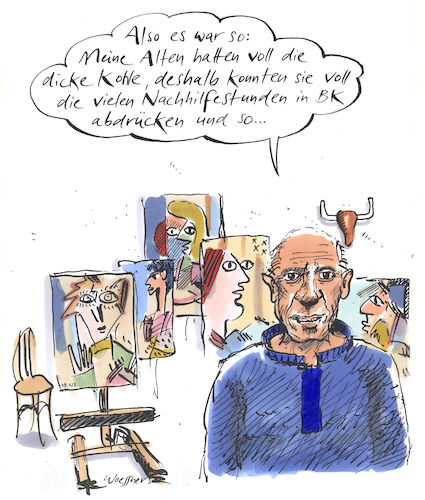 Also es war so:
Meine Alten hatten voll die
dicke Kohle, deshalb konnten sie voll
die vielen Nachhilfestunden in BK
abdrücken und so...
Woessner